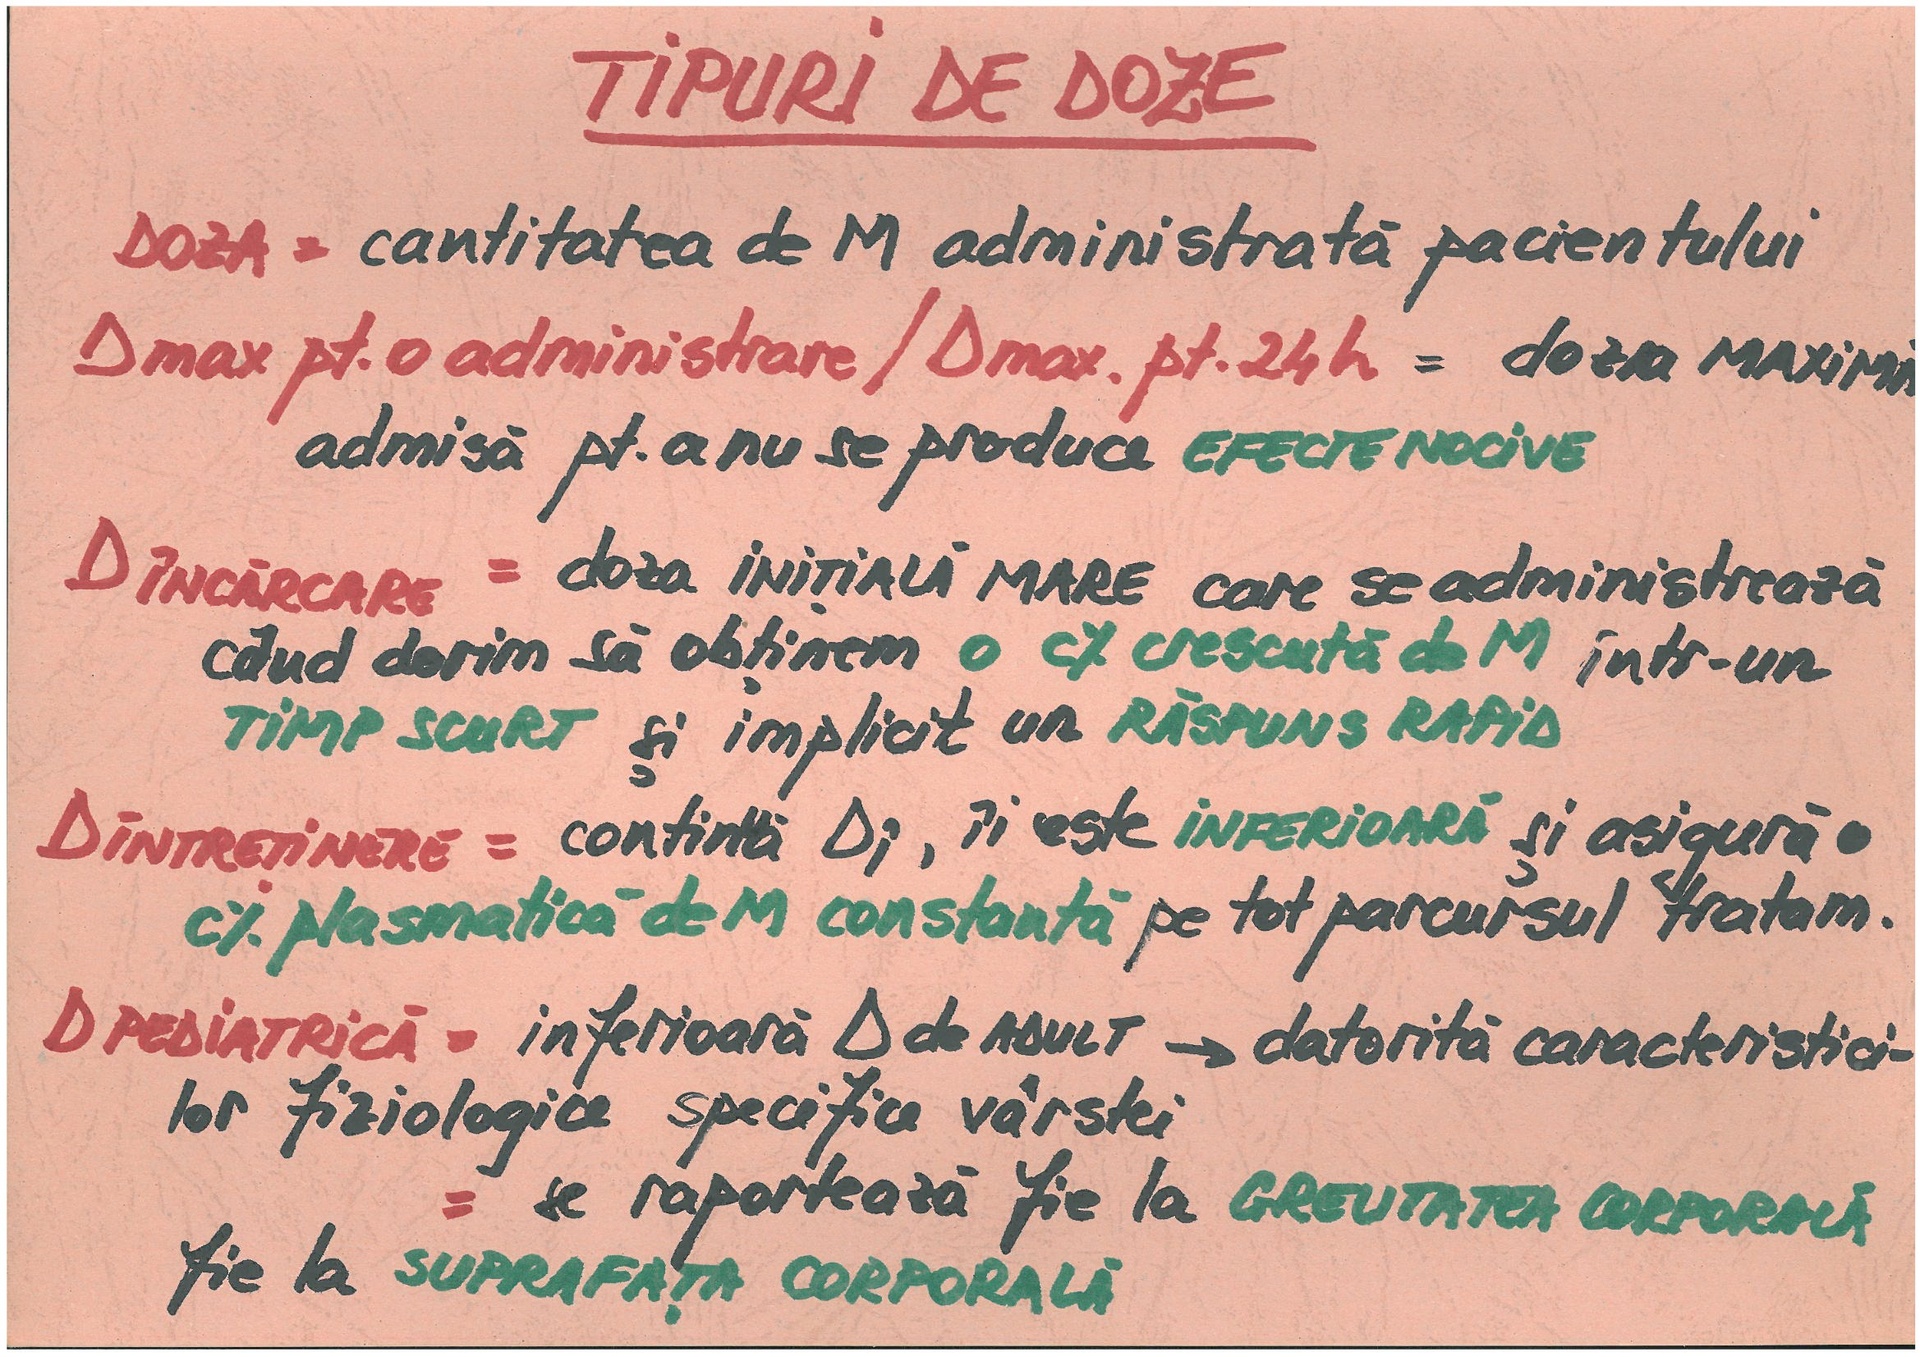 TIPURI DE DOZE
DOZA = cantitatea de M administrată pacientului
Dmax pt. o administrare / Dmax. pt. 24h = doza MAXIMĂ
admisă pt. a nu se produce EFECTE NOCIVE
D ÎNCĂRCARE = doza INIȚIALĂ MARE care se administrează
când dorim să obținem o c% crescută de M într-un
TIMP SCURT și implicit un RĂSPUNS RAPID
D ÎNTREȚINERE = contintă Dî, îi este INFERIOARĂ și asigură o
c%. plasmatică de M constantă pe tot parcursul tratam.
D PEDIATRICĂ = inferioară D de ADULT → datorită caracteristici-
lor fiziologice specifice vârstei
= se raportează fie la GREUTATEA CORPORALĂ
fie la SUPRAFAȚA CORPORALĂ